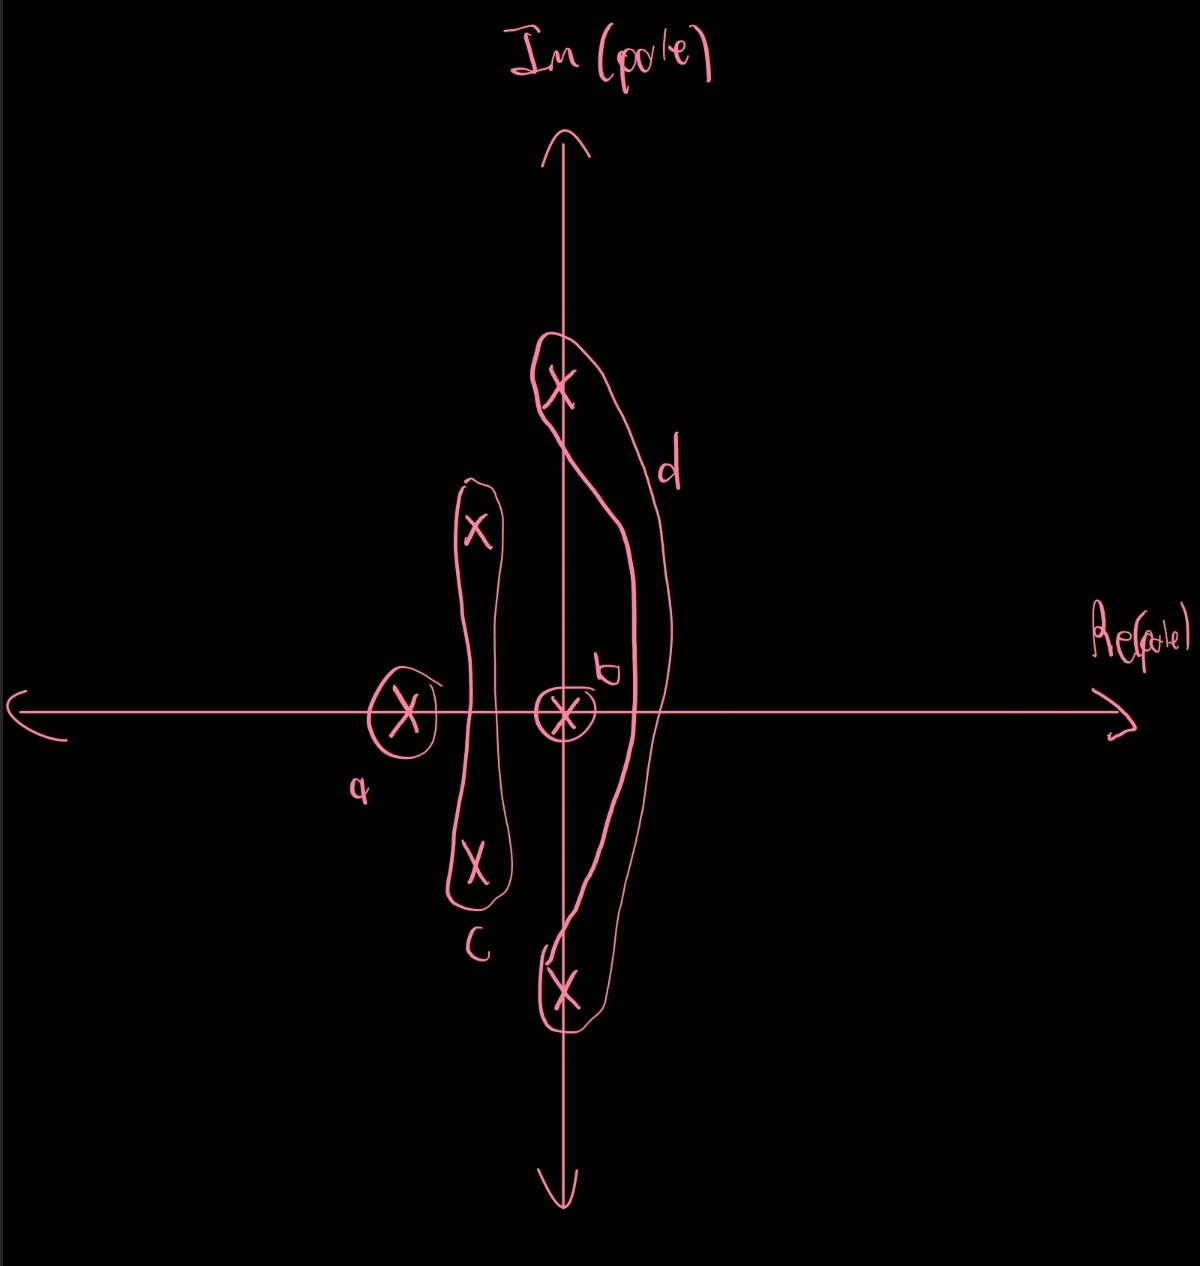 Im (pole)
X
d
X
b
Re(pole)
X
X
a
X
c
X